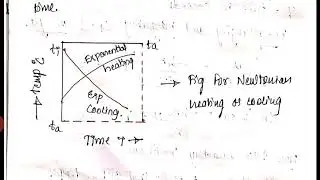 time.
ti
ta
Exponential
heating
Temp
Exp
Cooling
ta
Time T →
→ Fig for Newtonian
heating or cooling